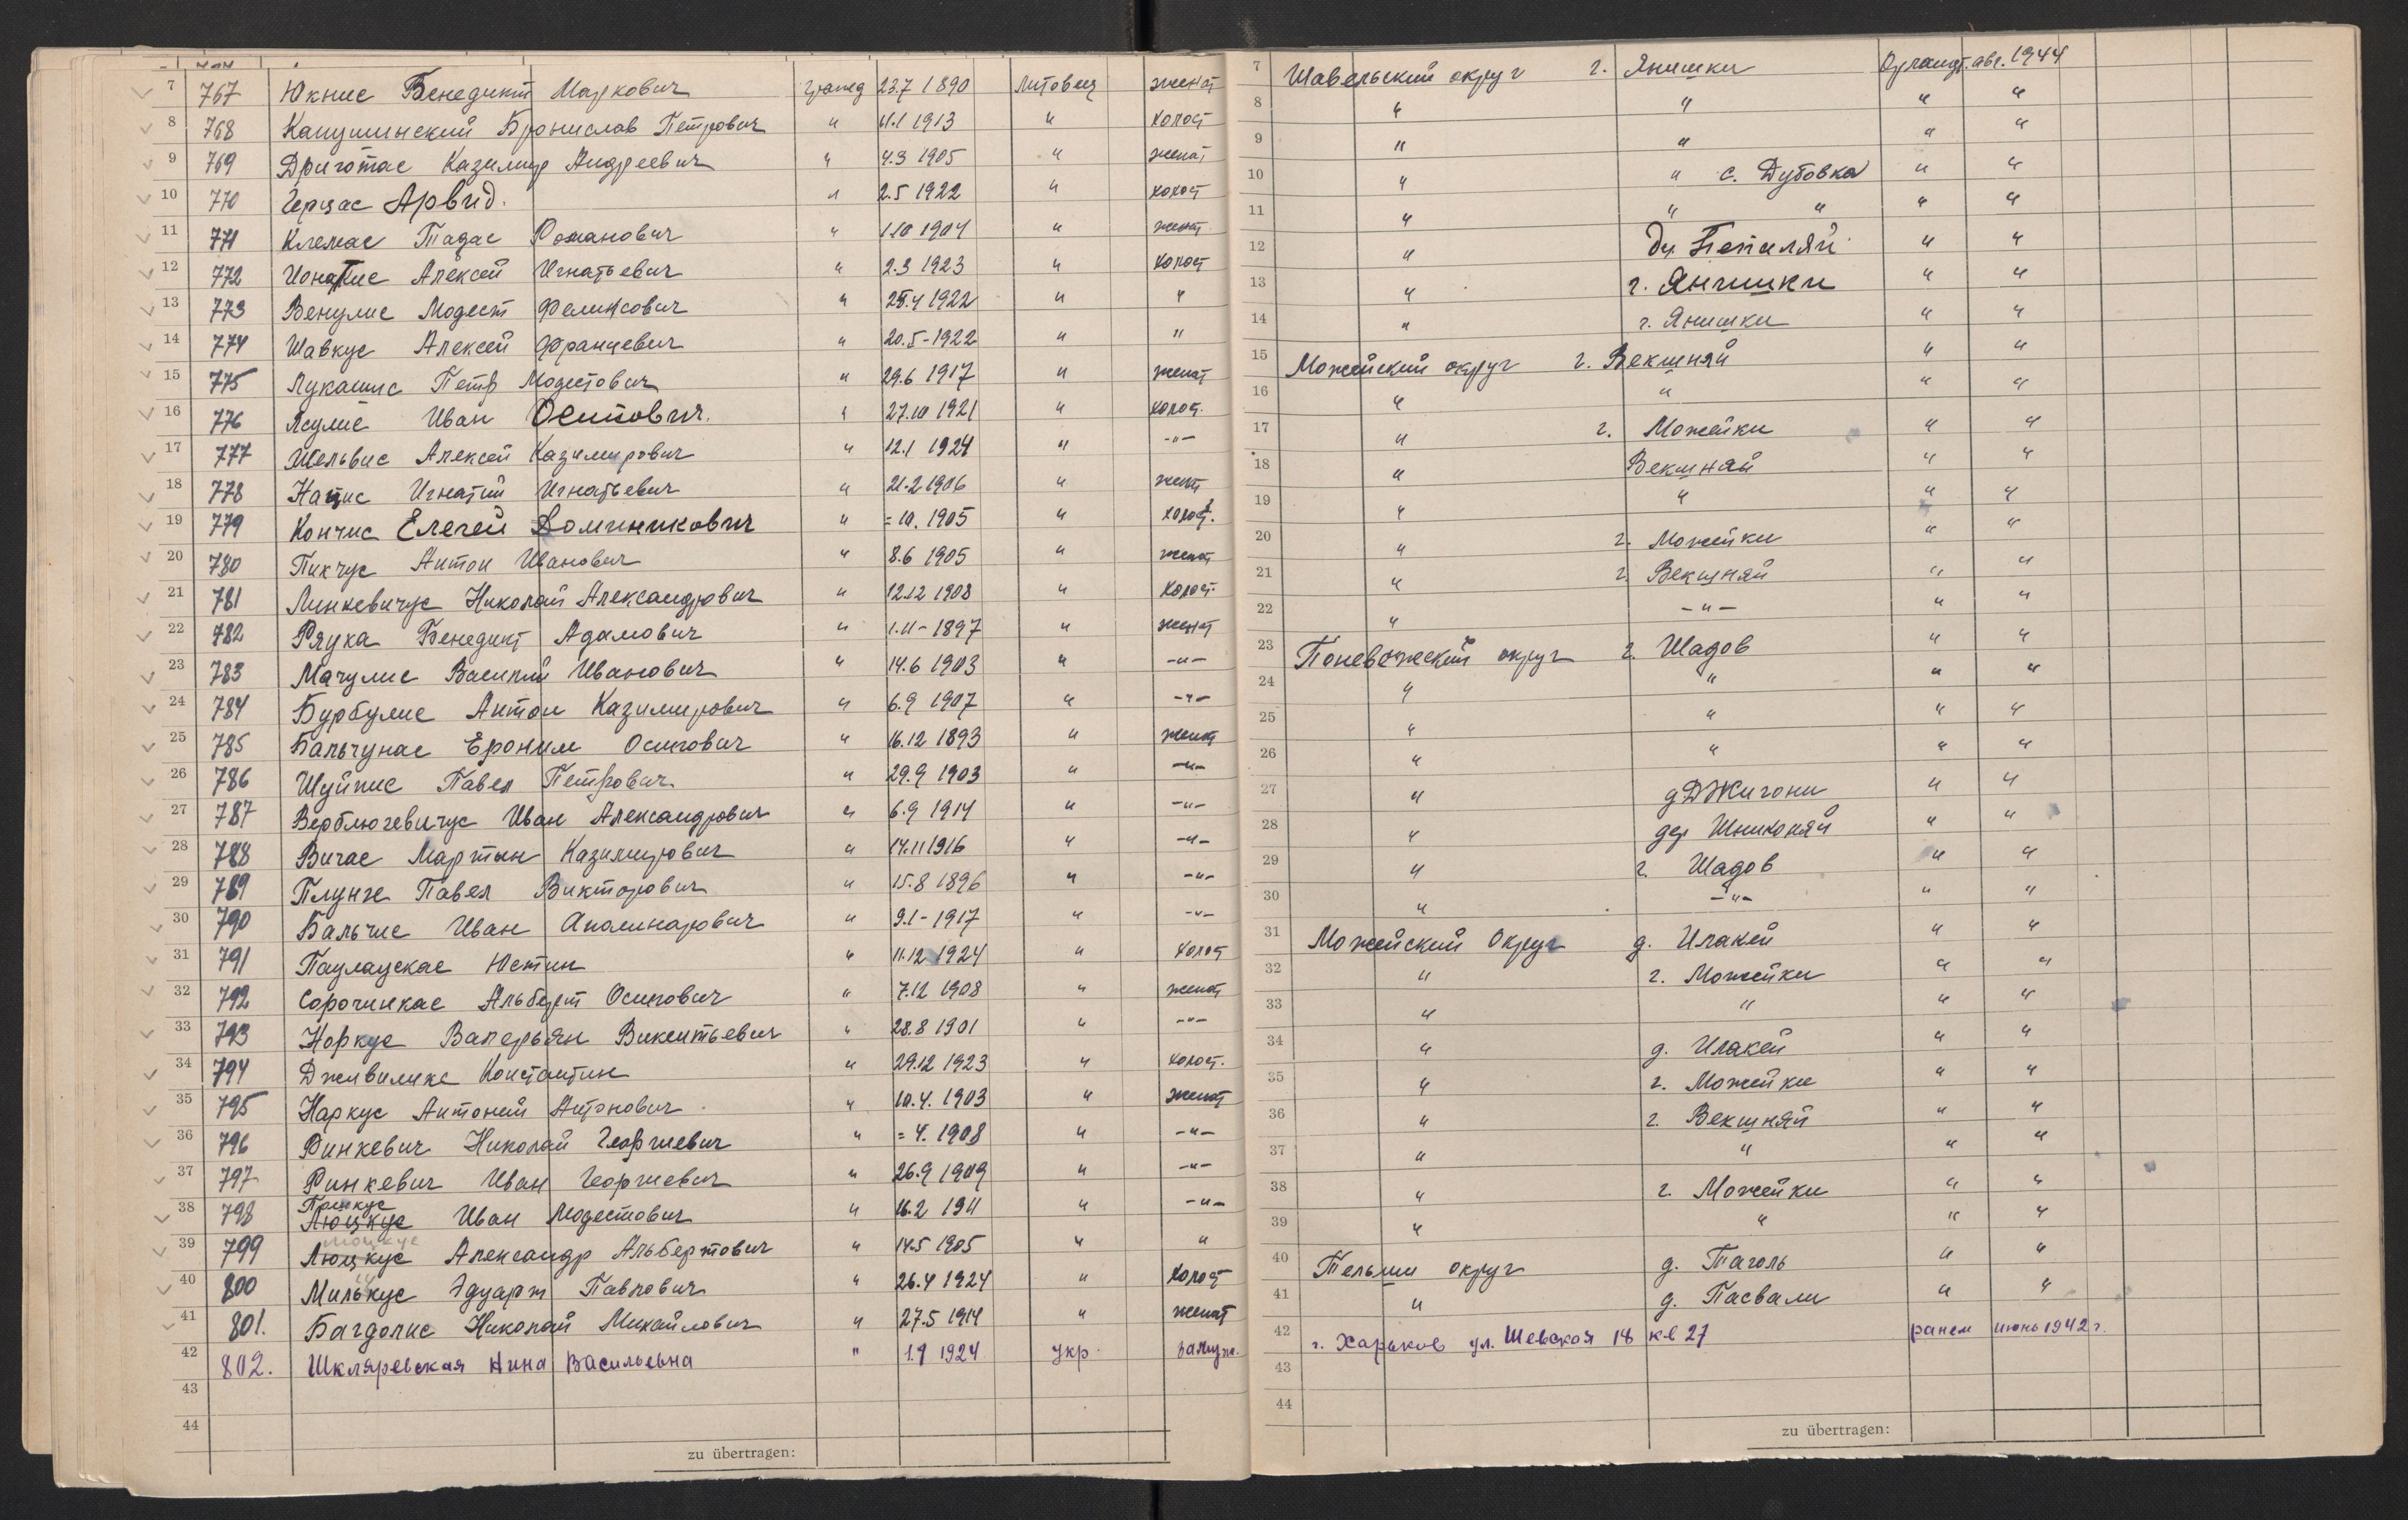 7 767 Юкнис Бенедикт Маркович гражд 23.7 1890 Литовец женат
8 768 Капушинский Бронислав Петрович " 11.1 1913 " холост
9 769 Дриготас Казимир Андреевич " 4.3 1905 " женат
10 770 Герцас Арвид. " 2.5 1922 " холост
11 771 Клемас Тадас Романович " 1.10 1904 " женат
12 772 Ионатис Алексей Игнатьевич " 2.3 1923 " холост
13 773 Венулис Модест Феликсович " 25.4 1922 " "
14 774 Шавкус Алексей Францевич " 20.5-1922 " "
15 775 Лукашис Петр Модестович " 29.6 1917 " женат
16 776 Ясулис Иван Осипович. " 27.10 1921 " холост.
17 777 Шельвис Алексей Казимирович " 12.1 1924 " -"-
18 778 Нацис Игнатий Игнатьевич " 21.2 1906 " женат
19 779 Кончис Елегей Доминикович " = 10. 1905 " холост.
20 780 Пикчус Антон Иванович " 8.6 1905 " женат
21 781 Линкевичус Николай Александрович " 12.12 1908 " холост.
22 782 Ряука Бенедикт Адамович " 1.11-1897 " женат
23 783 Мачулис Василий Иванович " 14.6 1903 " -"-
24 784 Бурбулис Антон Казимирович " 6.9 1907 " -"-
25 785 Бальчунас Ероним Осипович " 16.12 1893 " женат
26 786 Шуйпис Павел Петрович " 29.9 1903 " -"-
27 787 Верблюгевичус Иван Александрович " 6.9 1914 " -"-
28 788 Вичас Мартын Казимирович " 14.11 1916 " -"-
29 789 Плунге Павел Викторович " 15.8 1896 " -"-
30 790 Бальчис Иван Аполинарович " 9.1-1917 " -"-
31 791 Паулаускас Юстин " 11.12 1924 " холост
32 792 Сорочинкас Альберт Осипович " 7.12 1908 " женат
33 793 Норкус Валерьян Викентьевич " 28.8 1901 " -"-
34 794 Дживиликс Константин " 29.12 1923 " холост.
35 795 Наркус Антоний Антонович " 10.4. 1903 " женат
36 796 Ринкевич Николай Георгиевич " = 4. 1908 " -"-
37 797 Ринкевич Иван Георгиевич " 26.9 1909 " -"-
38 798 Люцкус Иван Модестович " 16.2 1911 " -"-
39 799 Люцкус Александр Альбертович " 14.5 1905 " "
40 800 Милькус Эдуарт Павлович " 26.4 1924 " холост
41 801. Багдонис Николай Михайлович " 27.5 1914 " женат
42 802. Шкляревская Нина Васильевна " 1.9 1924 укр. замуж.
43
44
zu übertragen:
7 Шавельский округ г. Янишки Арланд. авг. 1944
8 " " " "
9 " " " "
10 " " с. Дубовка " "
11 " " " " "
12 " Дер. Пепиляй " "
13 " г. Янишки " "
14 " г. Янишки " "
15 Можейский округ г. Векшняй " "
16 " " " "
17 " г. Можейки " "
18 " Векшняй " "
19 " " " "
20 " г. Можейки " "
21 " г. Векшняй " "
22 " -"- " "
23 Поневежский округ г. Шадов " "
24 " " " "
25 " " " "
26 " " " "
27 " д Джигони " "
28 " дер Шниконяй " "
29 " г. Шадов " "
30 " -"- " "
31 Можейский Округ д. Илакей " "
32 " г. Можейки " "
33 " " " "
34 " д. Илакей " "
35 " г. Можейки " "
36 " г. Векшняй " "
37 " " " "
38 " г. Можейки " "
39 " " " "
40 Тельши округ д. Таголь " "
41 " д. Пасвали " "
42 г. Харьков ул. Шевская 18 кв 27 ранен июнь 1942 г.
43
44
zu übertragen: